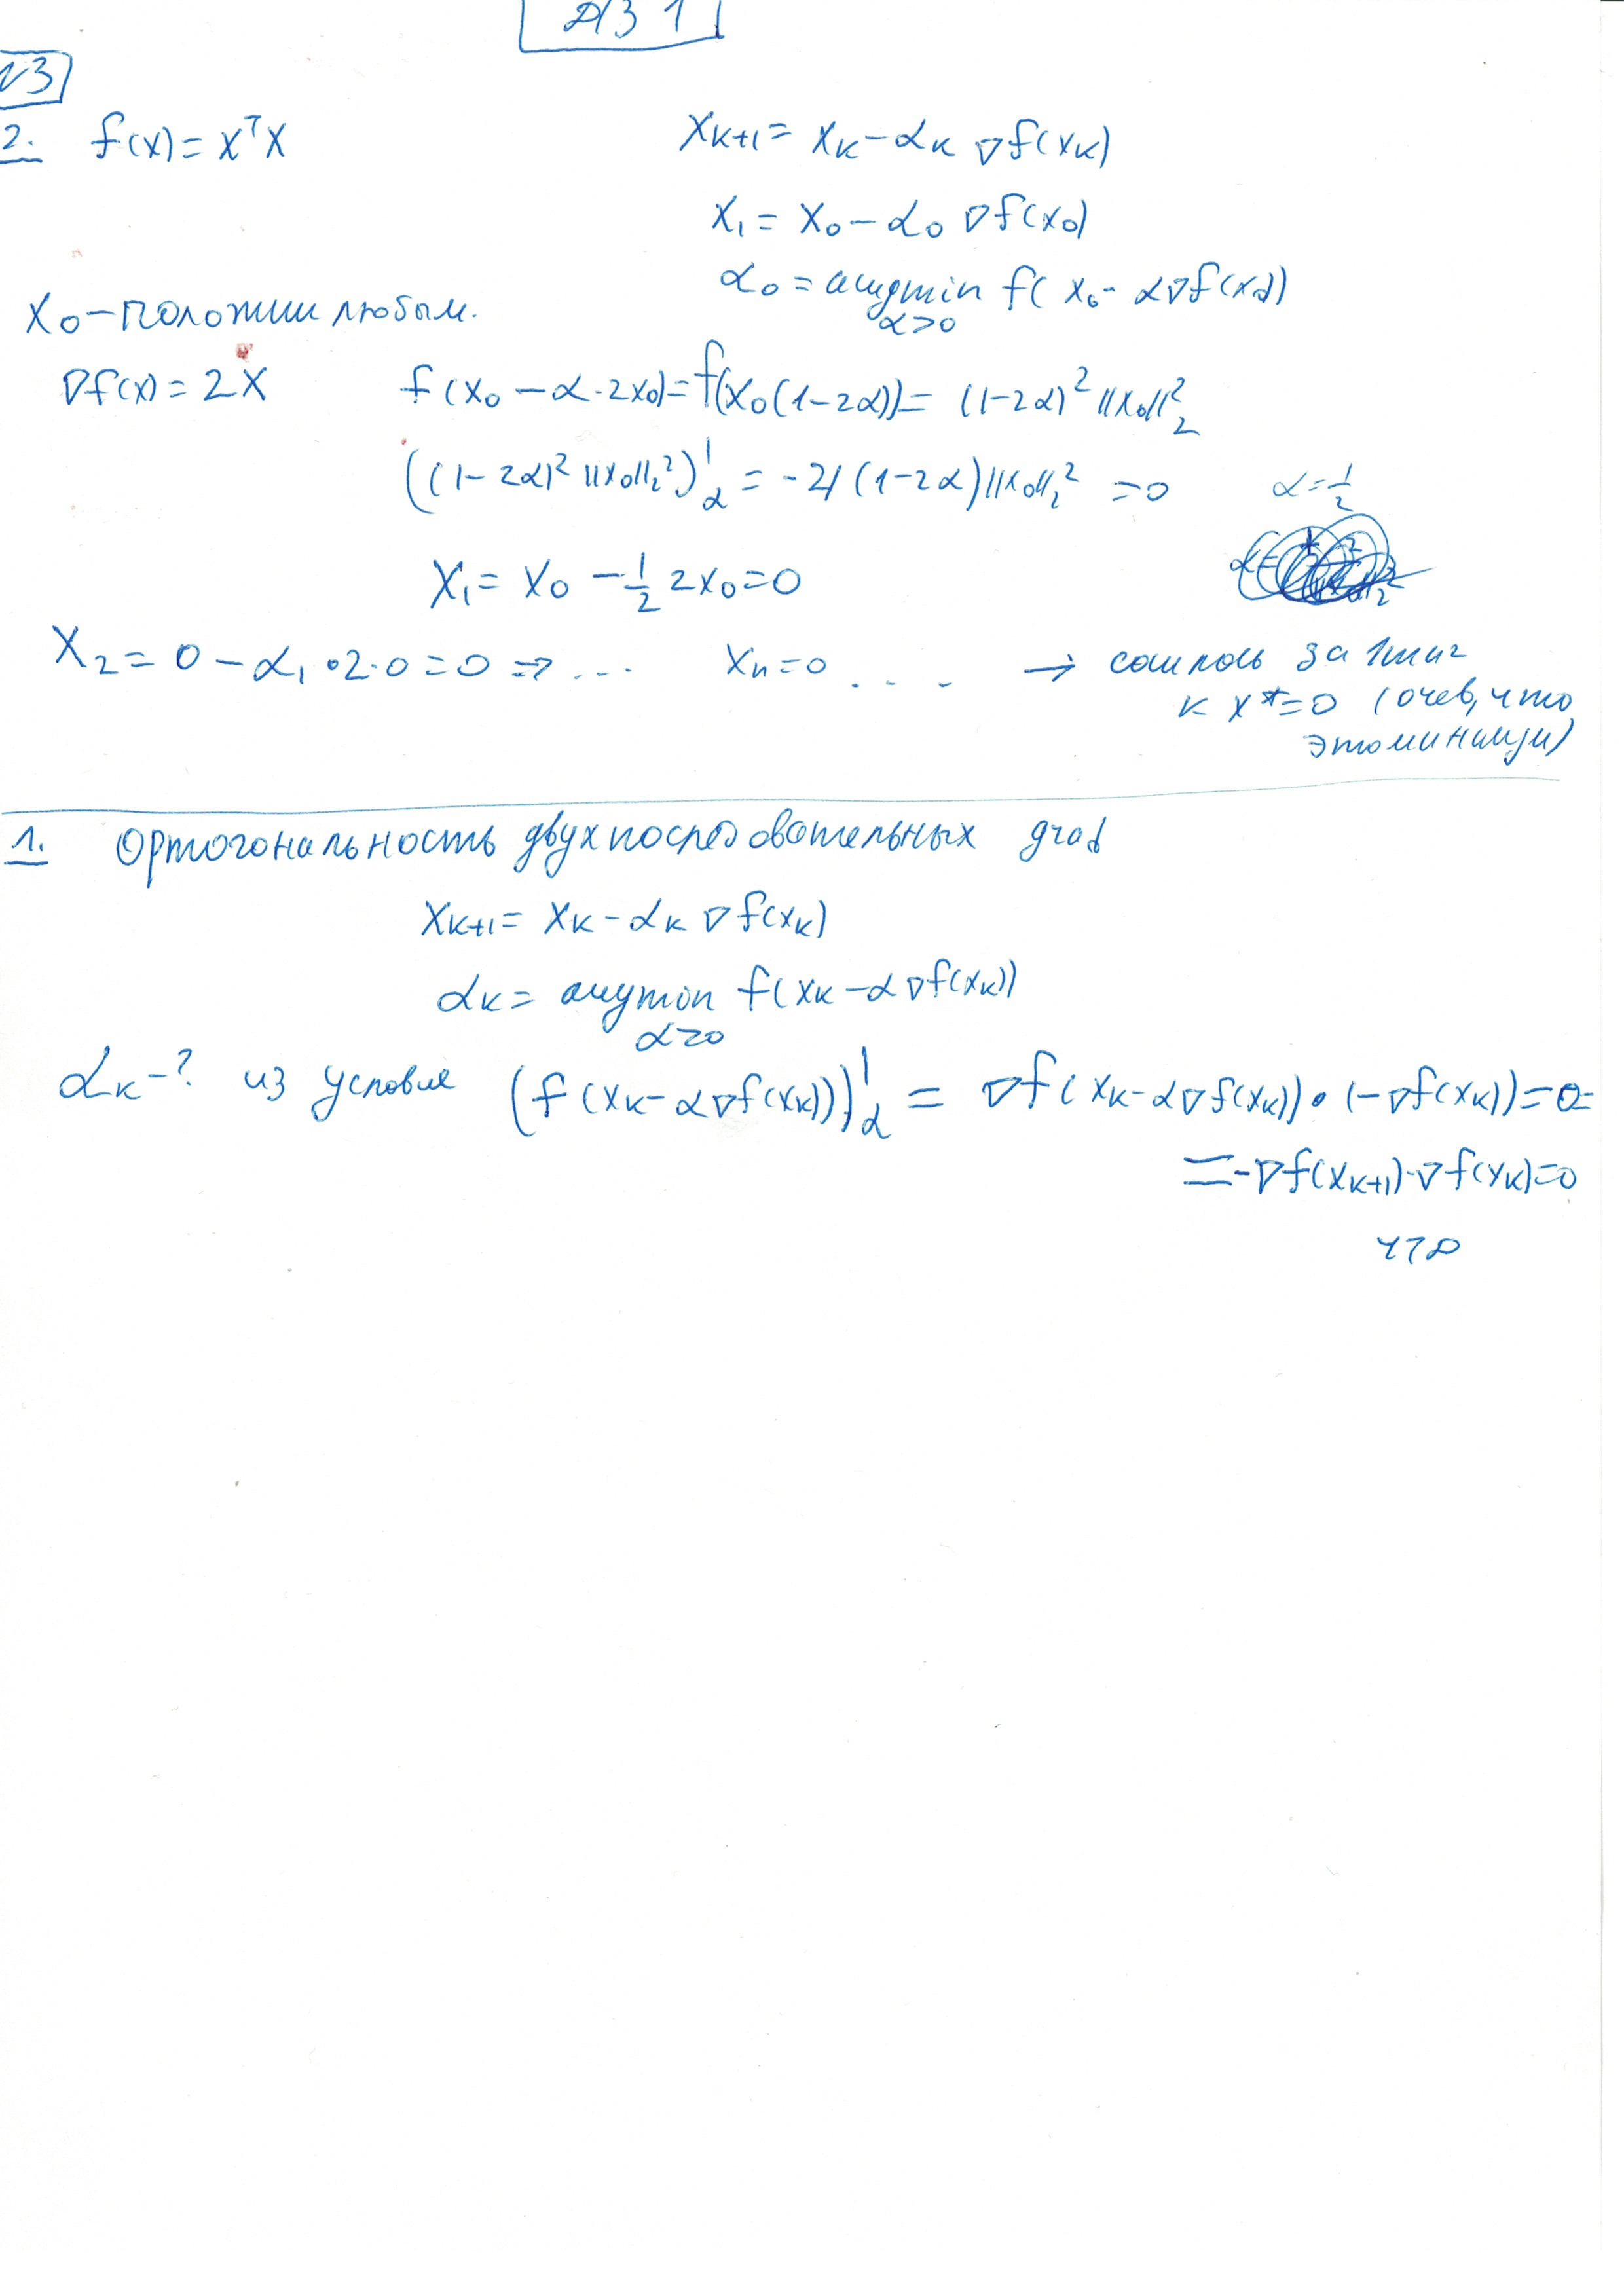 ДЗ 1
№3
2. f(x) = xᵀx
x_{k+1} = x_k − α_k ∇f(x_k)
x₁ = x₀ − α₀ ∇f(x₀)
α₀ = argmin f(x₀ − α∇f(x₀))
α>0
x₀ – положим любым.
∇f(x) = 2x
f(x₀ − α·2x₀) = f(x₀(1−2α)) = (1−2α)² ||x₀||₂²
((1−2α)² ||x₀||₂²)'_α = −4(1−2α)||x₀||₂² = 0
α = 1/2
x₁ = x₀ − 1/2 2x₀ = 0
x₂ = 0 − α₁·2·0 = 0 ⇒ ... xₙ = 0 ... → сошлось за 1 шаг
к x* = 0 (очев, что
это минимум)
1. Ортогональность двух последовательных grad
x_{k+1} = x_k − α_k ∇f(x_k)
α_k = argmin f(x_k − α∇f(x_k))
α≥0
α_k −? из условия (f(x_k − α∇f(x_k)))'_α = ∇f(x_k − α∇f(x_k))·(−∇f(x_k)) = 0 =
= −∇f(x_{k+1})·∇f(x_k) = 0
чтд